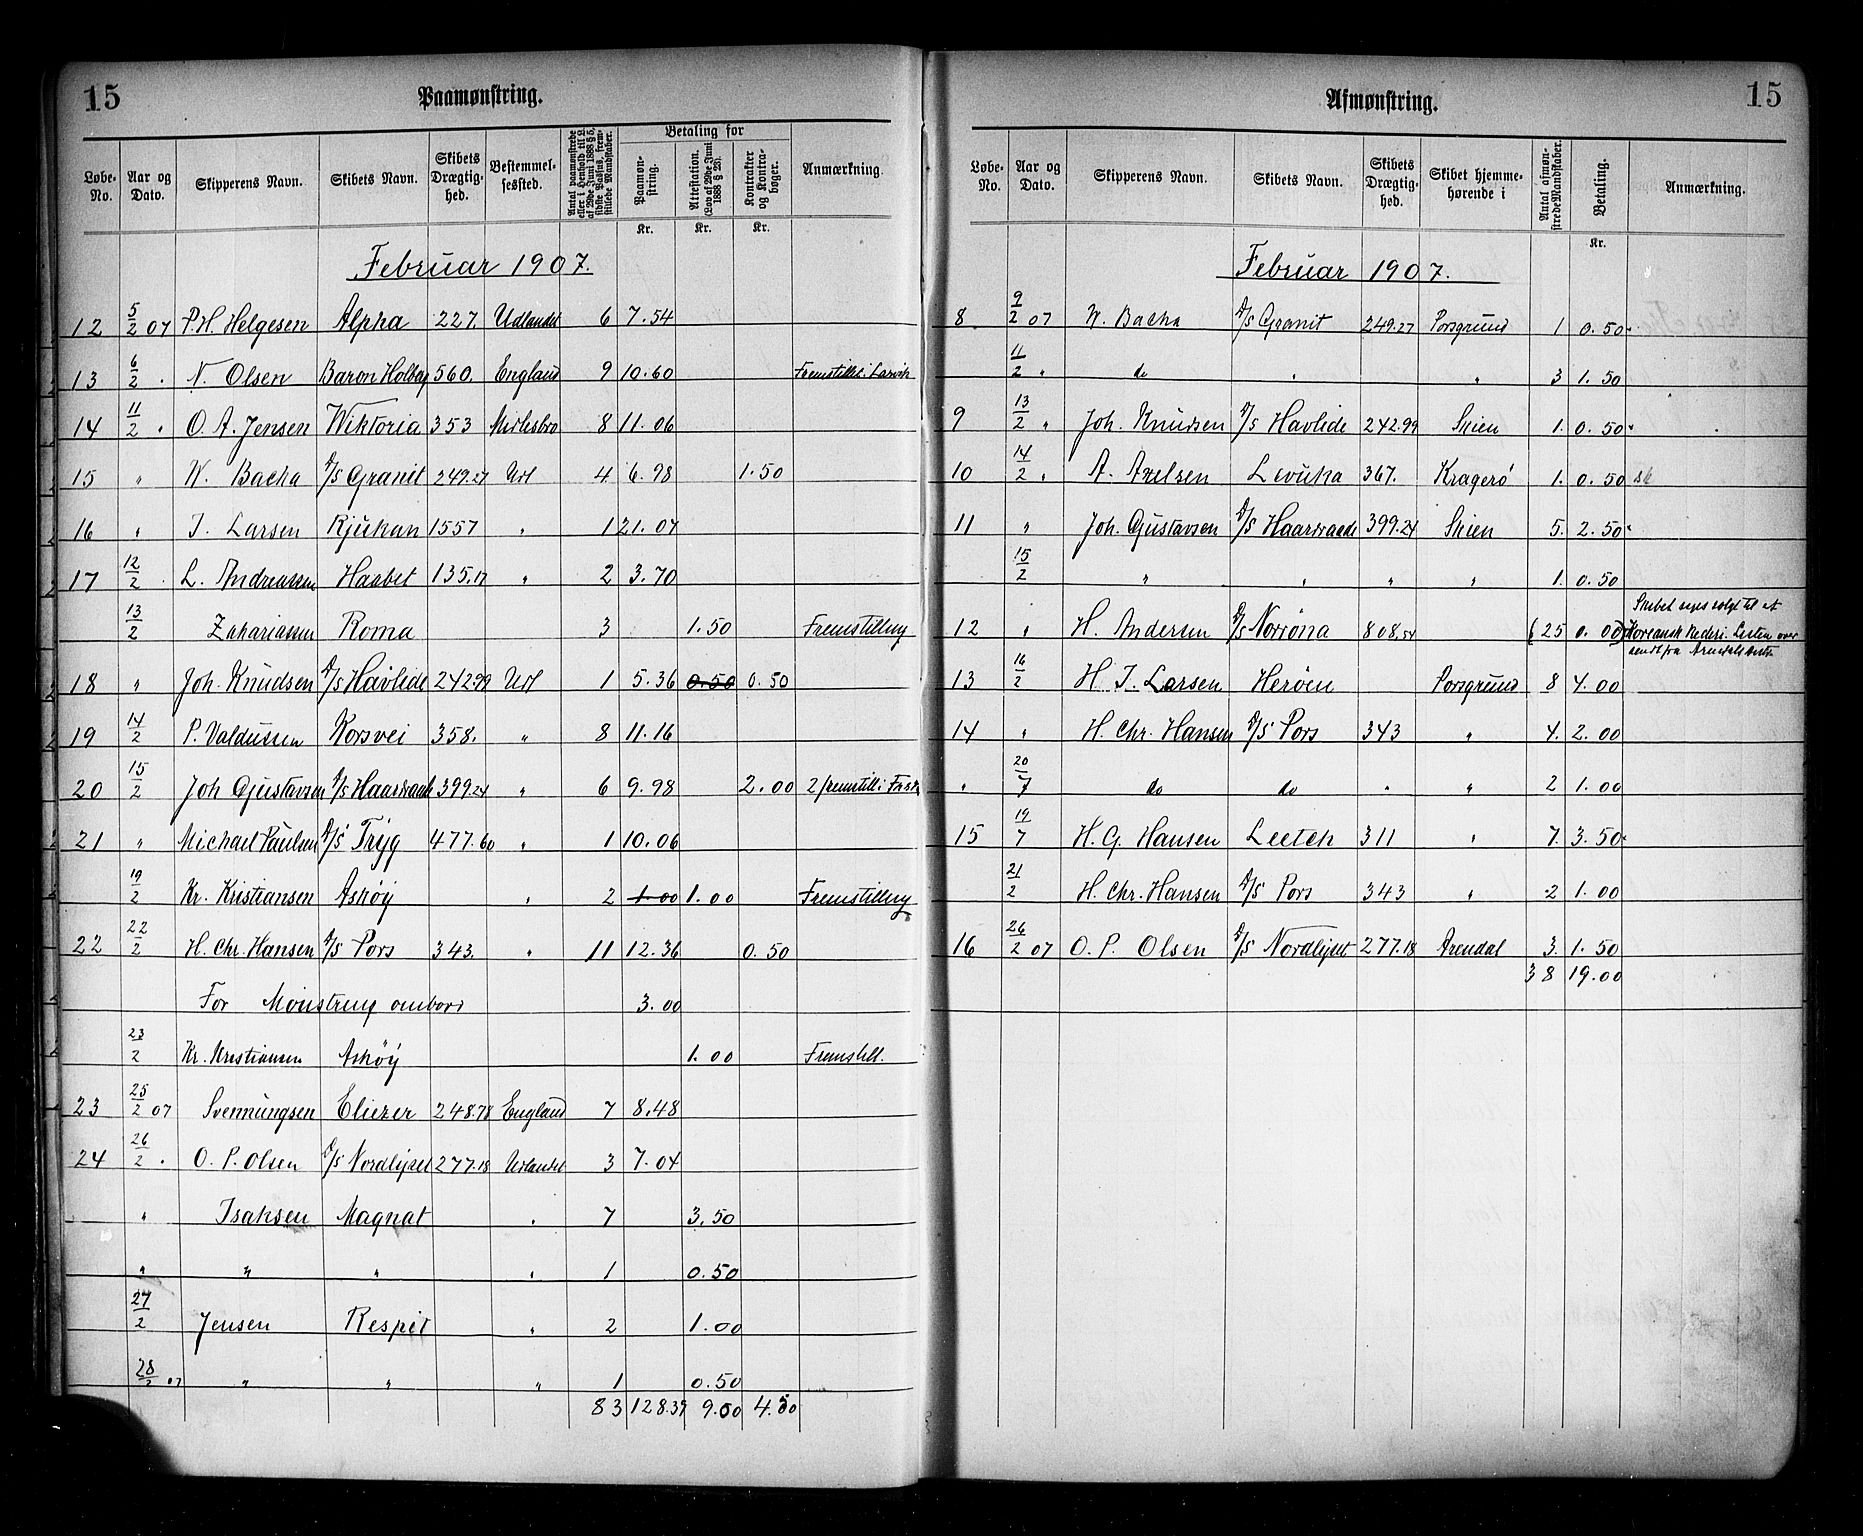 15 Paamønstring.
Løbe-No. Aar og Dato. Skipperens Navn. Skibets Navn. Skibets Drægtighed. Bestemmelsessted. Antal paamønstrede eller i Henhold til L. af 29de Juni 1888 § 5, sidste Passus, fremstillede Mandskaber. Betaling for Paamønstring. Attestation. (Lov af 29de Juni 1888 § 23). Kontrakter og Kontrabøger. Anmærkning.
Kr. Kr. Kr.
Februar 1907.
12 5/2 07 P.H. Helgesen Alpha 227. Udlandet 6 7.54
13 6/2 . N. Olsen Baron Holberg 560. England 9 10.60 Fremstillet i Larvik
14 11/2 . O. A. Jensen Wiktoria 353 Midlesbro 8 11.06
15 " W. Bacha D/S Granit 249.27 Udl 4 6.98 1.50
16 " I. Larsen Rjukan 1557 " 1 21.07
17 12/2 . L. Andreassen Haabet 135.17 " 2 3.70
13/2 Zakariassen Roma 3 1.50 Fremstilling
18 " Joh. Knudsen D/S Havlide 242.99 Udl 1 5.36 0.50 0.50
19 14/2 P. Valdussen Korsvei 358. " 8 11.16
20 15/2 Joh Gjustavsen D/S Haardraade 399.24 " 6 9.98 2.00 2 fremstill i
21 " Michael Paulsen D/S Tryg 477.60 " 1 10.06
19/2 Kr. Kristiansen Askøy " 2 1.00 1.00 Fremstilling
22 22/2 H. Chr. Hansen D/S Pors 343. " 11 12.36 0.50
For Mønstring ombord 3.00
23/2 Kr. Kristiansen Askøy 1.00 Fremstill.
23 25/2 07 Svennungsen Eliezer 248.78 England 7 8.48
24 26/2 . O. P. Olsen D/S Nordlyset 277.18 Udlandet 3 7.04
" Isaksen Magnat " 7 3.50
" " " " 1 0.50
27/2 Jensen Respit " 2 1.00
28/2 07 " " " 1 0.50
83 128.39 9.00 4.50
Afmønstring. 15
Løbe-No. Aar og Dato. Skipperens Navn. Skibets Navn. Skibets Drægtighed. Skibet hjemmehørende i Antal afmønstrede Mandskaber. Betaling. Anmærkning.
Kr.
Februar 1907.
8. 9/2 07 W. Bacha D/S Granit 249.27 Porsgrund 1 0.50
11/2 " do " " 3 1.50
9 13/2 " Joh. Knudsen D/S Havlide 242.99 Skien 1. 0.50
10 14/2 " A. Axelsen Levuka 367. Kragerø 1. 0.50
11 " Joh. Gjustavsen D/S Haardraade 399.24 Skien 5. 2.50
15/2 " " " " 1. 0.50
12 " H. Andersen D/S Norröna 808.54 (25 0.00) Skibet siges solgt til et Koreansk Rederi. Listen over sendt fra Arendals
13 16/2 H. I. Larsen Herøen Porsgrund 8 4.00
14 " H. Chr. Hansen D/S Pors 343 " 4. 2.00
" 20/7 do do " " 2 1.00
15 19/7 H. G. Hansen Leetch 311 " 7. 3.50
21/2 H. Chr. Hansen D/S Pors 343 " 2 1.00
16 26/2 07 O. P. Olsen D/S Nordlyset 277.18 Arendal 3. 1.50
38 19.00